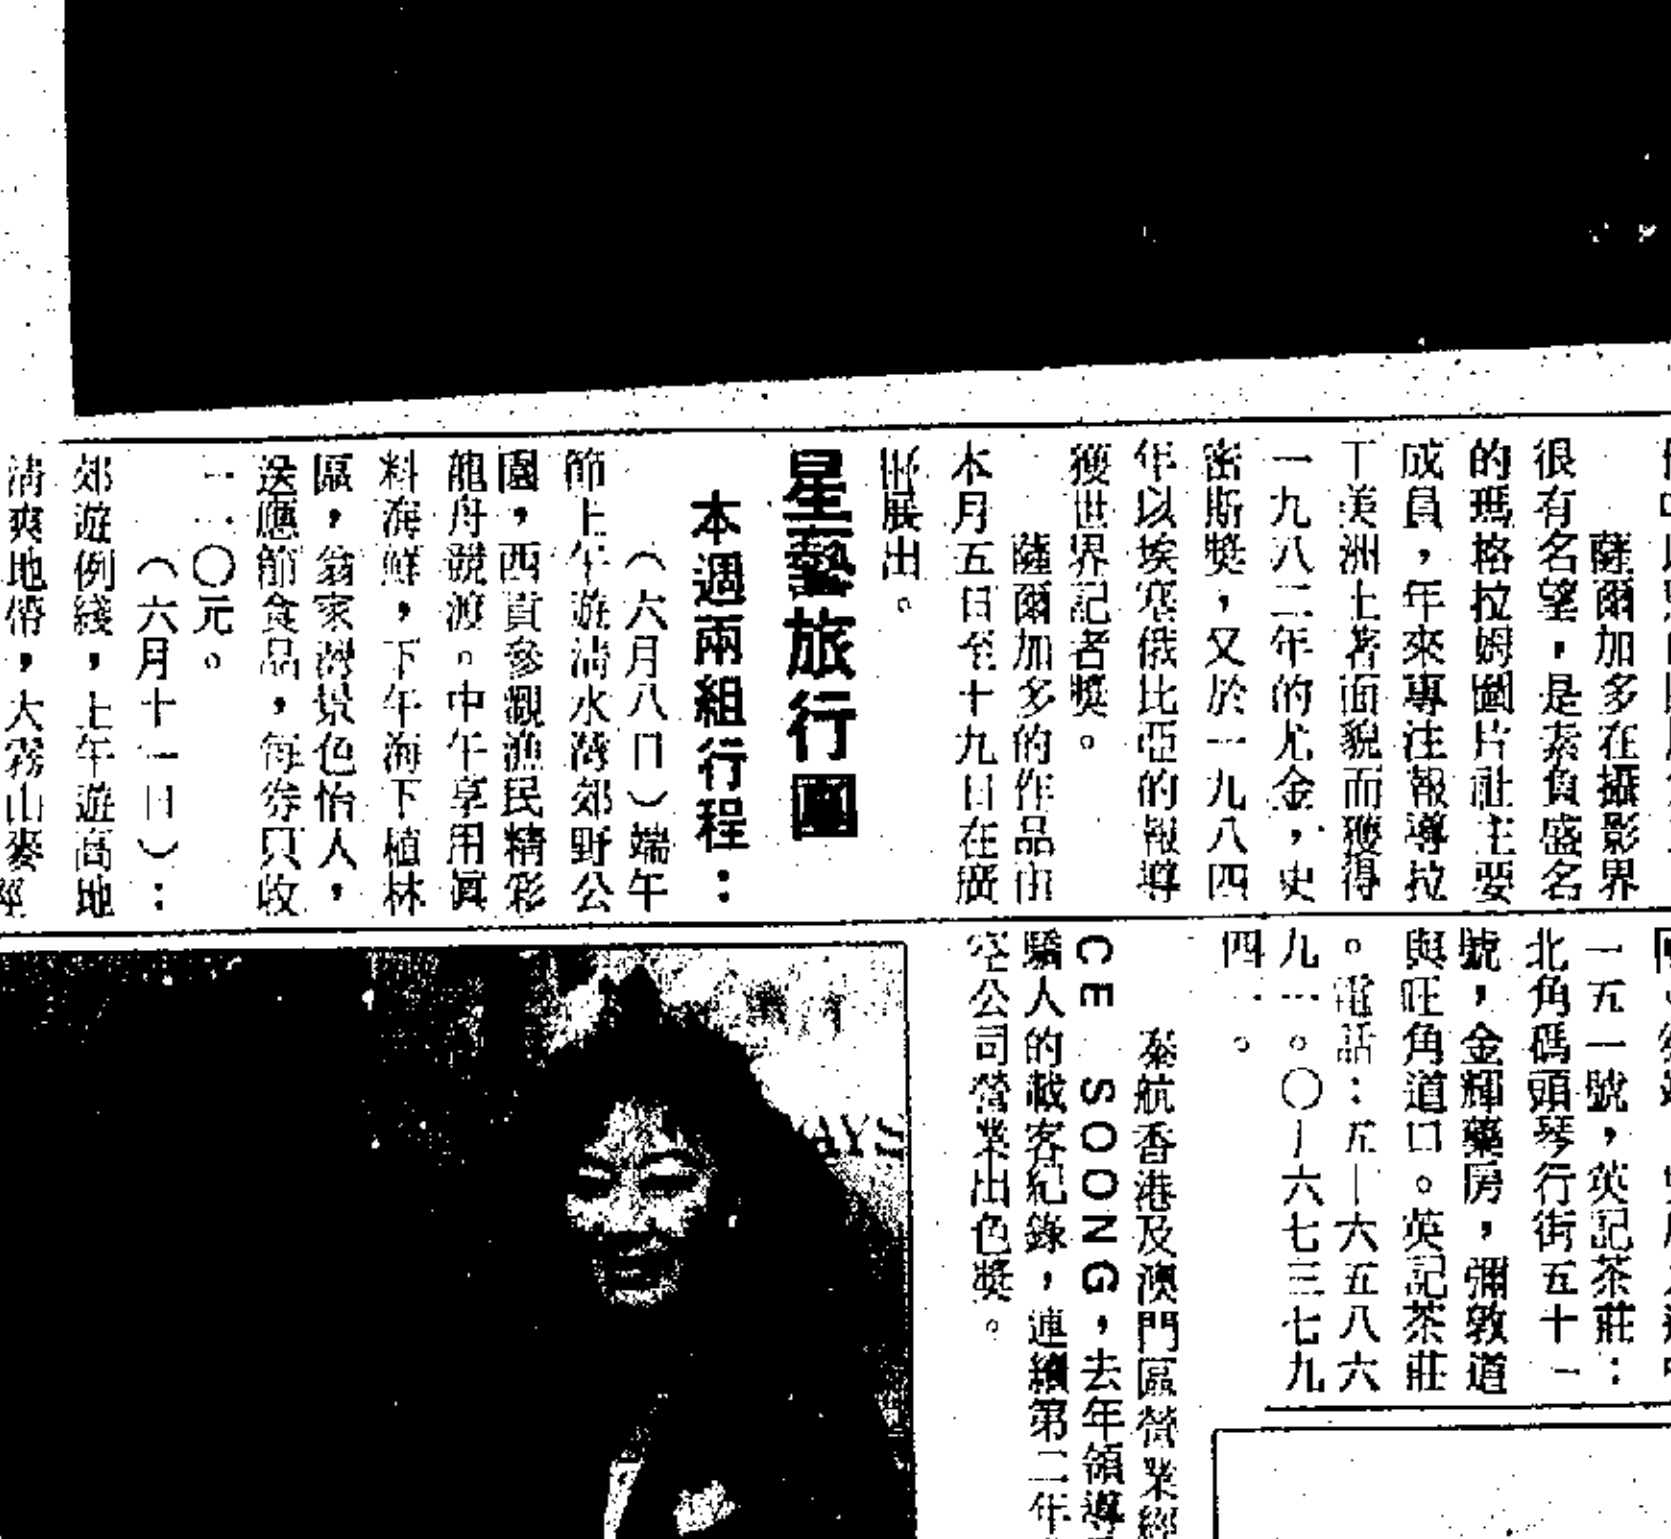 薩爾加多在攝影界
很有名望，是素負盛名
的瑪格拉姆圖片社主要
成員，年來專注報導拉
丁美洲土著面貌而獲得
一九八二年的尤金，史
密斯獎，又於一九八四
年以埃塞俄比亞的報導
獲世界記者獎。
薩爾加多的作品由
本月五日至十九日在廣
展出。
星藝旅行團
本週兩組行程：
（六月八日）端午
節上午遊清水灣郊野公
園，西貢參觀漁民精彩
龍舟競渡。中午享用眞
料海鮮，下午海下植林
區，翁家灣景色怡人，
送應節食品，每券只收
〇元。
（六月十一日）：
郊遊例綫，上午遊高地
清爽地帶，大霧山麥徑
一五一號，英記茶莊：
北角碼頭琴行街五十一
號，金輝藥房，彌敦道
與旺角道口。英記茶莊
。電話：五—六五八六
九一。〇—六七三七九
四
泰航香港及澳門區營業經
CE SOONG，去年領導
驕人的載客紀錄，連續第二年
空公司營業出色獎。
WAYS